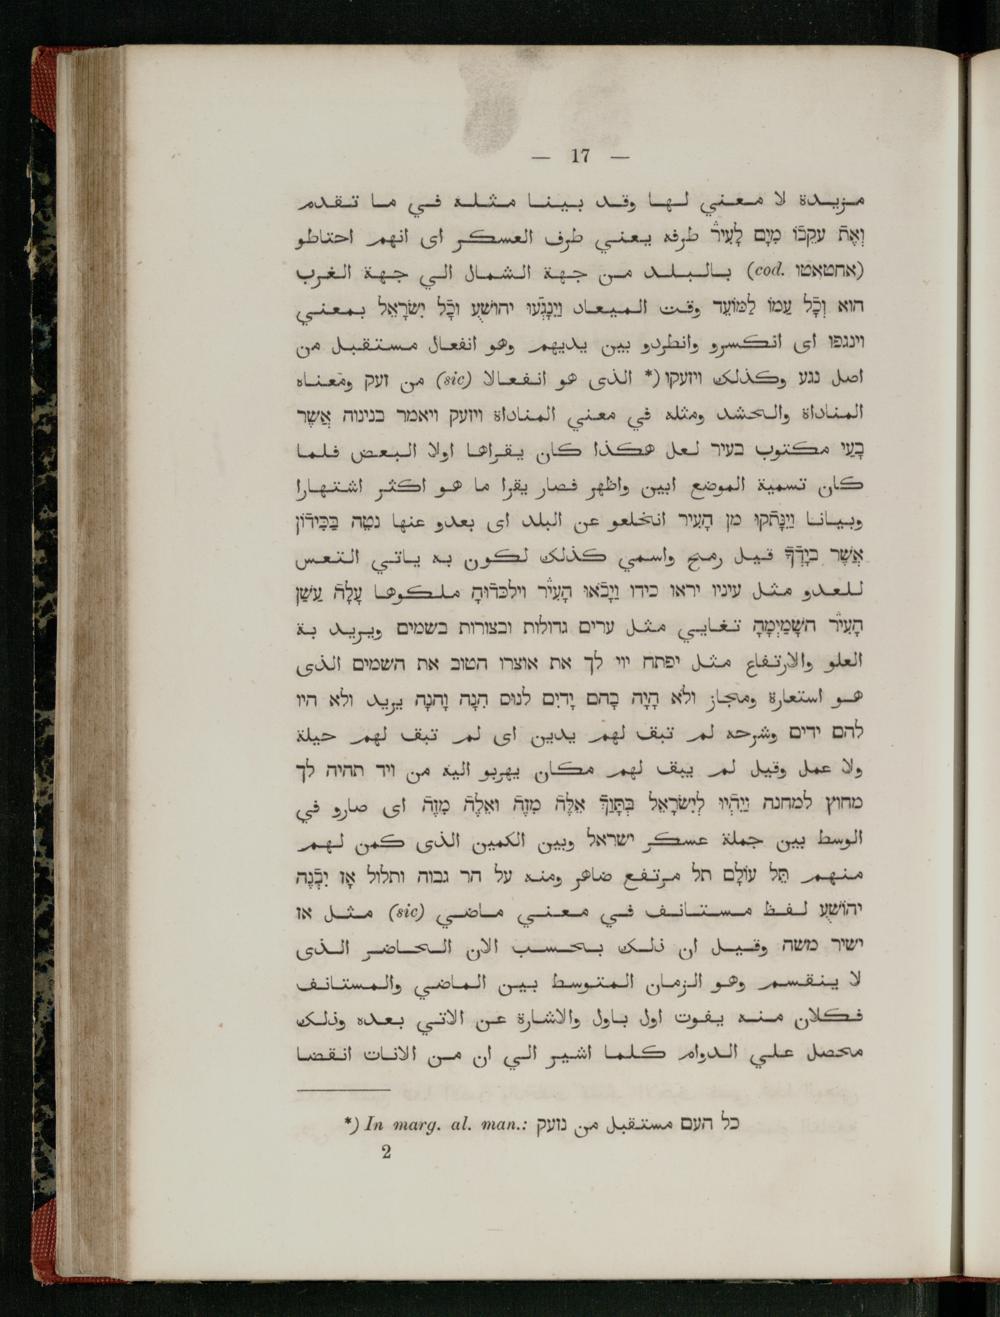 — 17 —
مزيدة لا معني لها وقد بينا مثله في ما تقدم
וְאֶת עקֵבוֹ מִיָם לָעִיר طرفه يعني طرف العسكر اى انهم احتاطو
(אחטאטו .cod) بالبلد من جهة الشمال الي جهة الغرب
הוא וְכָל עַמוֹ לַמוֹעֵד وقت الميعاد וַיִנָגְעו יהושֻע וכָל יִשרָאֵל بمعني
וינגפו اى انكسرو وانطردو بين يديهم وهو انفعال مستقبل من
اصل נגע وكذلك ויזעקו (* الذى هو انفعالا (sic) من זעק ومعناه
المناداة والحشد ومثله في معني المناداة ויזעק ויאמר בנינוה אֲשֶר
בָעַי مكتوب בעיר لعل هكذا كان يقراها اولا البعض فلما
كان تسمية الموضع ابين واظهر فصار يقرا ما هو اكثر اشتهارا
وبيانا וַיִנָתְקו מִן הָעִיר انخلعو عن البلد اى بعدو عنها נטֵה בַכִידוֹן
אֲשֶר בְיָדְךָ قيل رمح واسمي كذلك لكون به ياتي التعس
للعدو مثل עיניו יראו כידו וַיָבֹאו הָעִיר וילכדוהָ ملكوها עָלָה עֲשַן
הָעִיר השָמַיְמָה تغايي مثل ערים גדולות ובצורות בשמים ويريد بة
العلو والارتفاع مثل יפתח יוי לך את אוצרו הטוב את השמים الذى
هو استعارة ومجاز ולֹא הָיָה בָהֶם יָדַיִם לנוס הֵנָה וָהֵנָה يريد ולא היו
להם ידים وشرحه لم تبق لهم يدين اى لم تبق لهم حيلة
ولا عمل وقيل لم يبق لهم مكان يهربو اليه من ויד תהיה לך
מחוץ למחנה וַיִהְיו לְיִשרָאֵל בְתָוֶךְ אֵלֶה מִזֶה ואֵלֶה מִזֶה اى صارو في
الوسط بين جملة عسكر ישראל وبين الكمين الذى كمن لهم
منهم תֵל עוֹלָם תל مرتفع ضاهر ومنه על הר גבוה ותלול אָז יִבְנֶה
יהוֹשֻעַ لفظ مستانف في معني ماضي (sic) مثل אז
ישיר משה وقيل ان ذلك بحسب الان الحاضر الذى
لا ينقسم وهو الزمان المتوسط بين الماضي والمستانف
فكلان منه يفوت اول باول والاشارة عن الاتي بعده وذلك
محصل علي الدوام كلما اشير الي ان من الانات انقضا
*) In marg. al. man.: כל העם مستقبل من נזעק
2